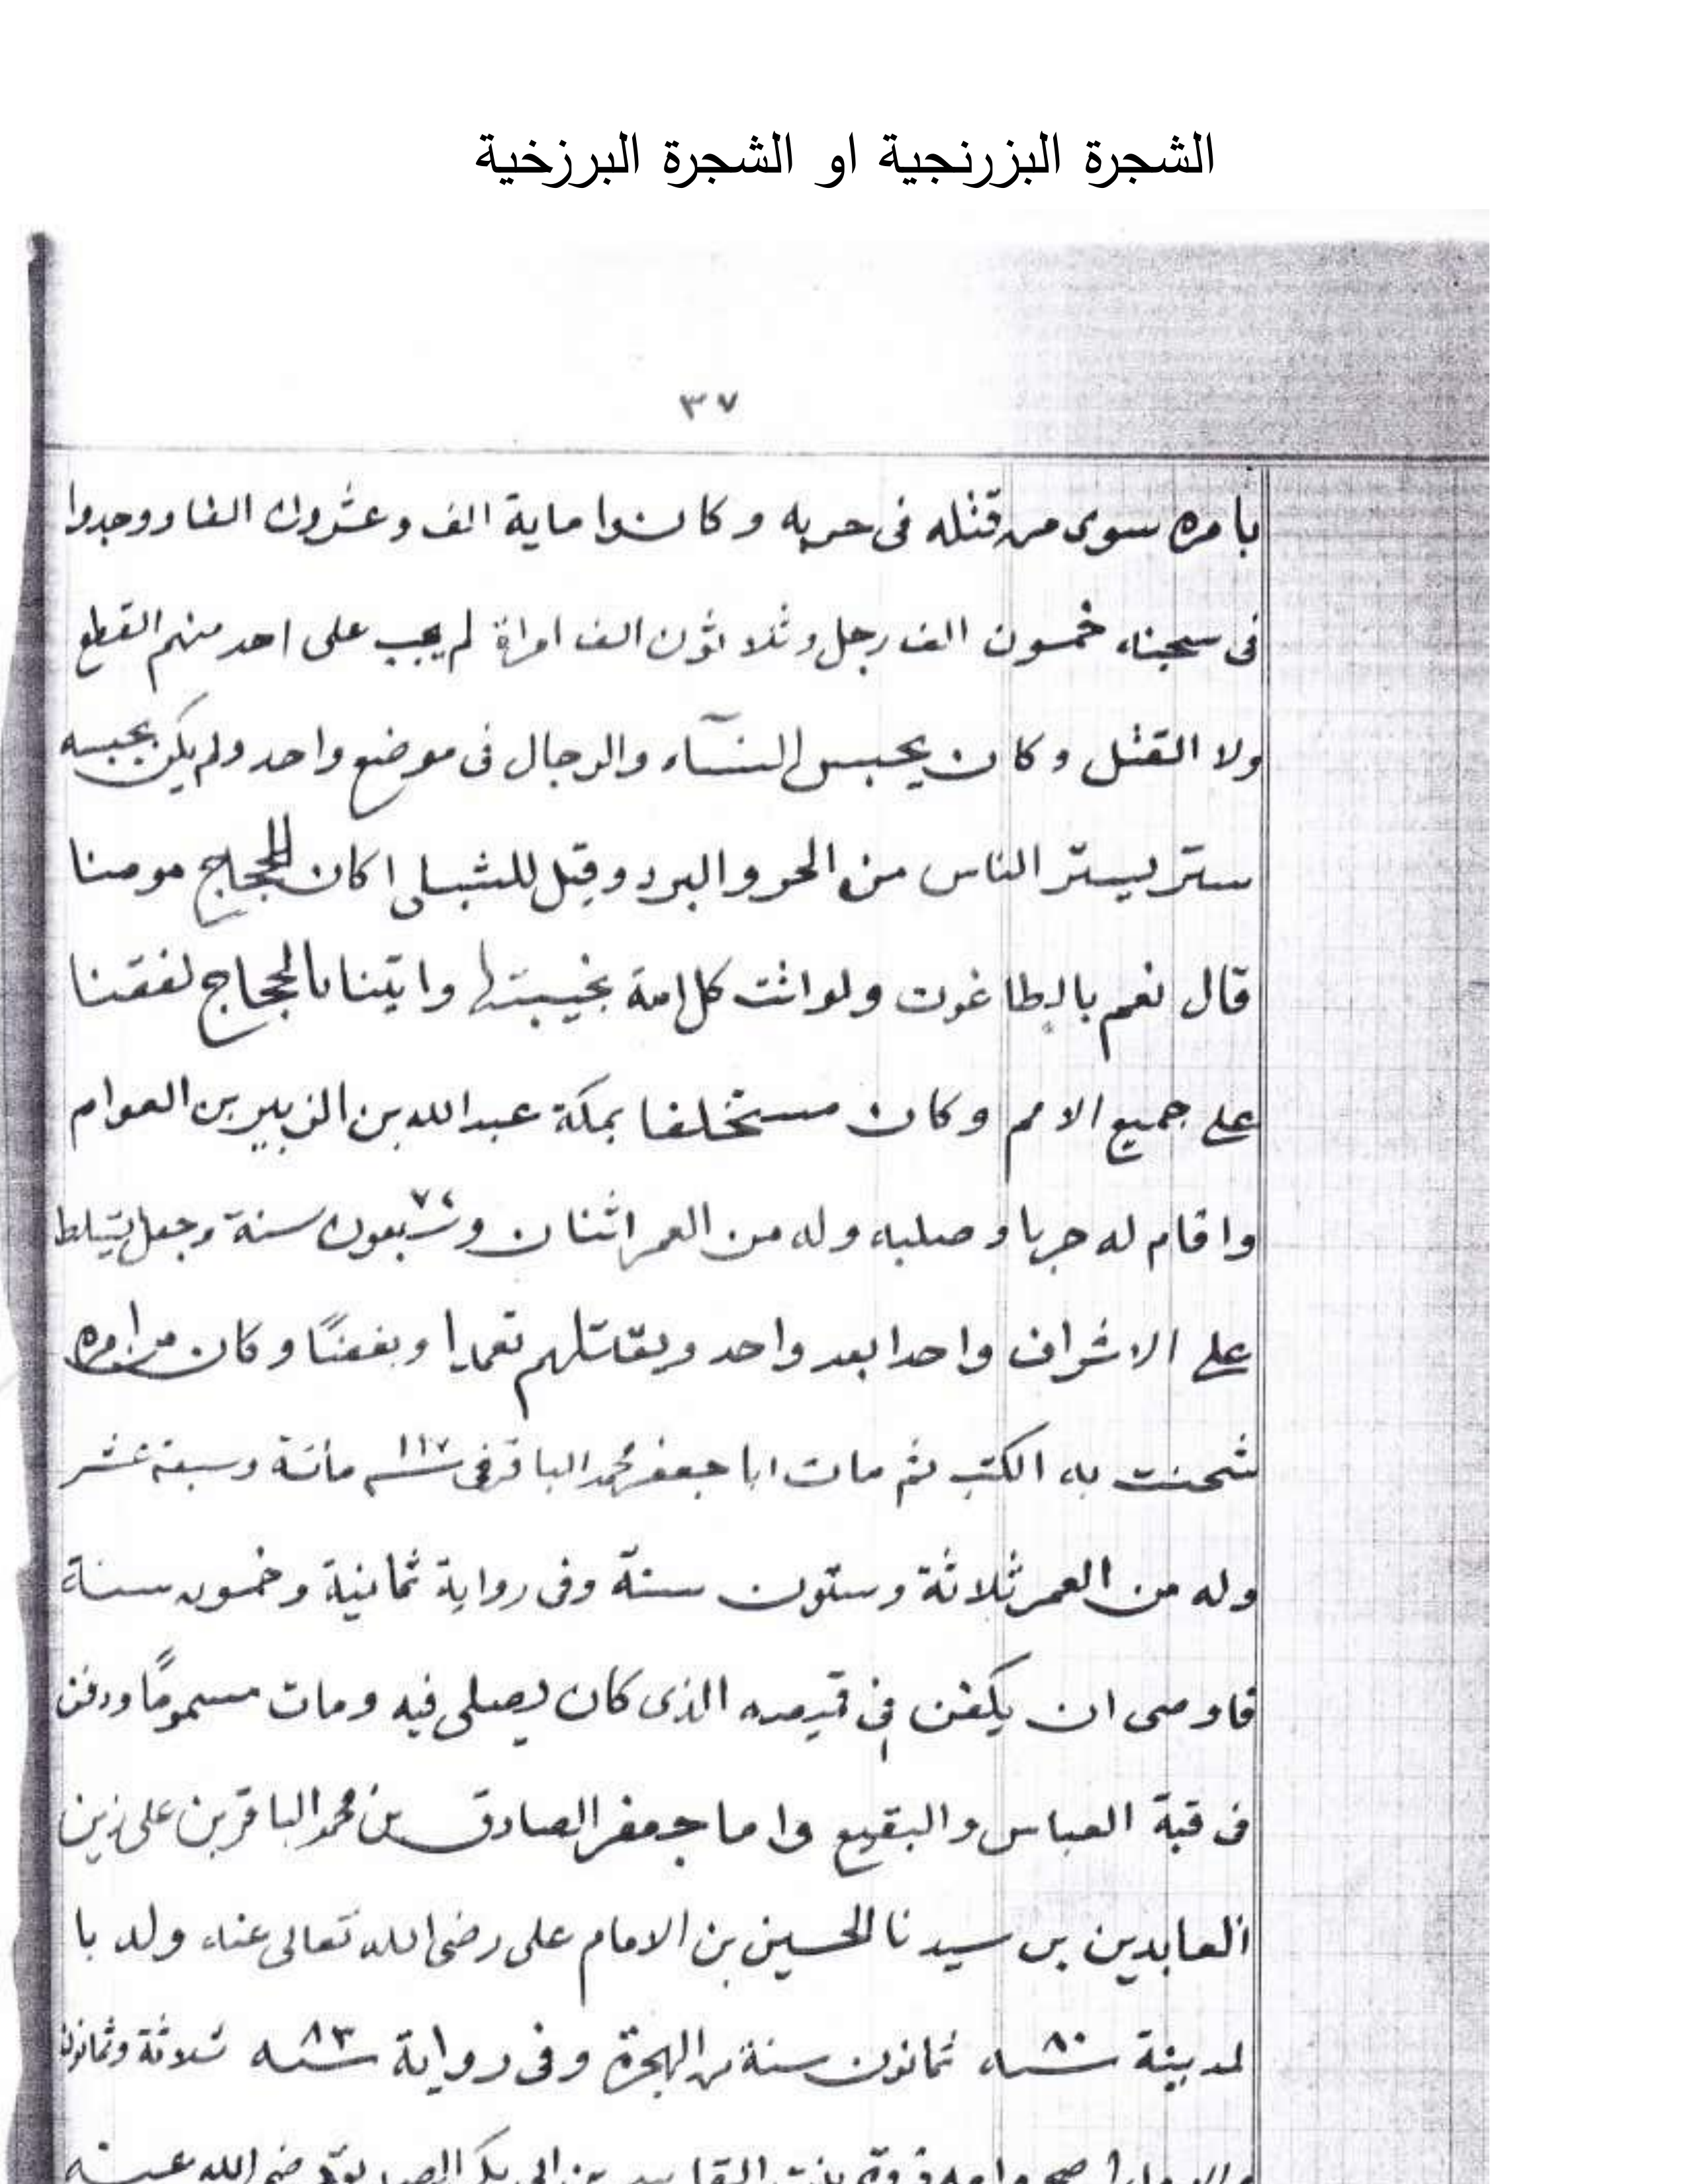 الشجرة البزرنجية او الشجرة البرزخية
٣٧
بامره سوى من قتله فى حربه و كانوا ماية الف و عشرون الفا و وجدوا
فى سجنه خمسون الف رجل و ثلاثون الف امراة لم يجب على احد منهم القطع
ولا القتل و كان يحبس النسآء والرجال فى موضع واحد ولم يكن بحبسه
ستر يستر الناس من الحر و البرد و قيل للشبلى اكان الحجاج مومنا
قال نعم بالطاغوت ولو اتت كل امة بخبيثها و اتينا بالحجاج لفقنا
على جميع الامم و كان مستخلفا بمكة عبد الله بن الزبير بن العوام
واقام له حربا و صلبه وله من العمر اثنان و سبعون ٧٢ سنة وجعل يتسلط
على الاشراف واحدا بعد واحد ويقتلهم تعمدا وبغضًا و كان من امره
شحنت به الكتب ثم مات ابا جعفر محمد الباقر فى سنه ١١٧ مائة وسبعة عشر
وله من العمر ثلاثة وستون سنة وفى رواية ثمانية وخمسون سنة
فاوصى ان يكفن فى قميصه الذى كان يصلى فيه ومات مسمومًا ودفن
فى قبة العباس والبقيع واما جعفر الصادق بن محمد الباقر بن على زين
العابدين بن سيدنا الحسين بن الامام على رضى الله تعالى عنه ولد با
لمدينة سنه ٨٠ ثمانون سنة من الهجرة وفى رواية سنه ٨٣ ثلاثة وثمانون
وامه فروة بنت القاسم بن ابى بكر الصديق رضى الله عنه